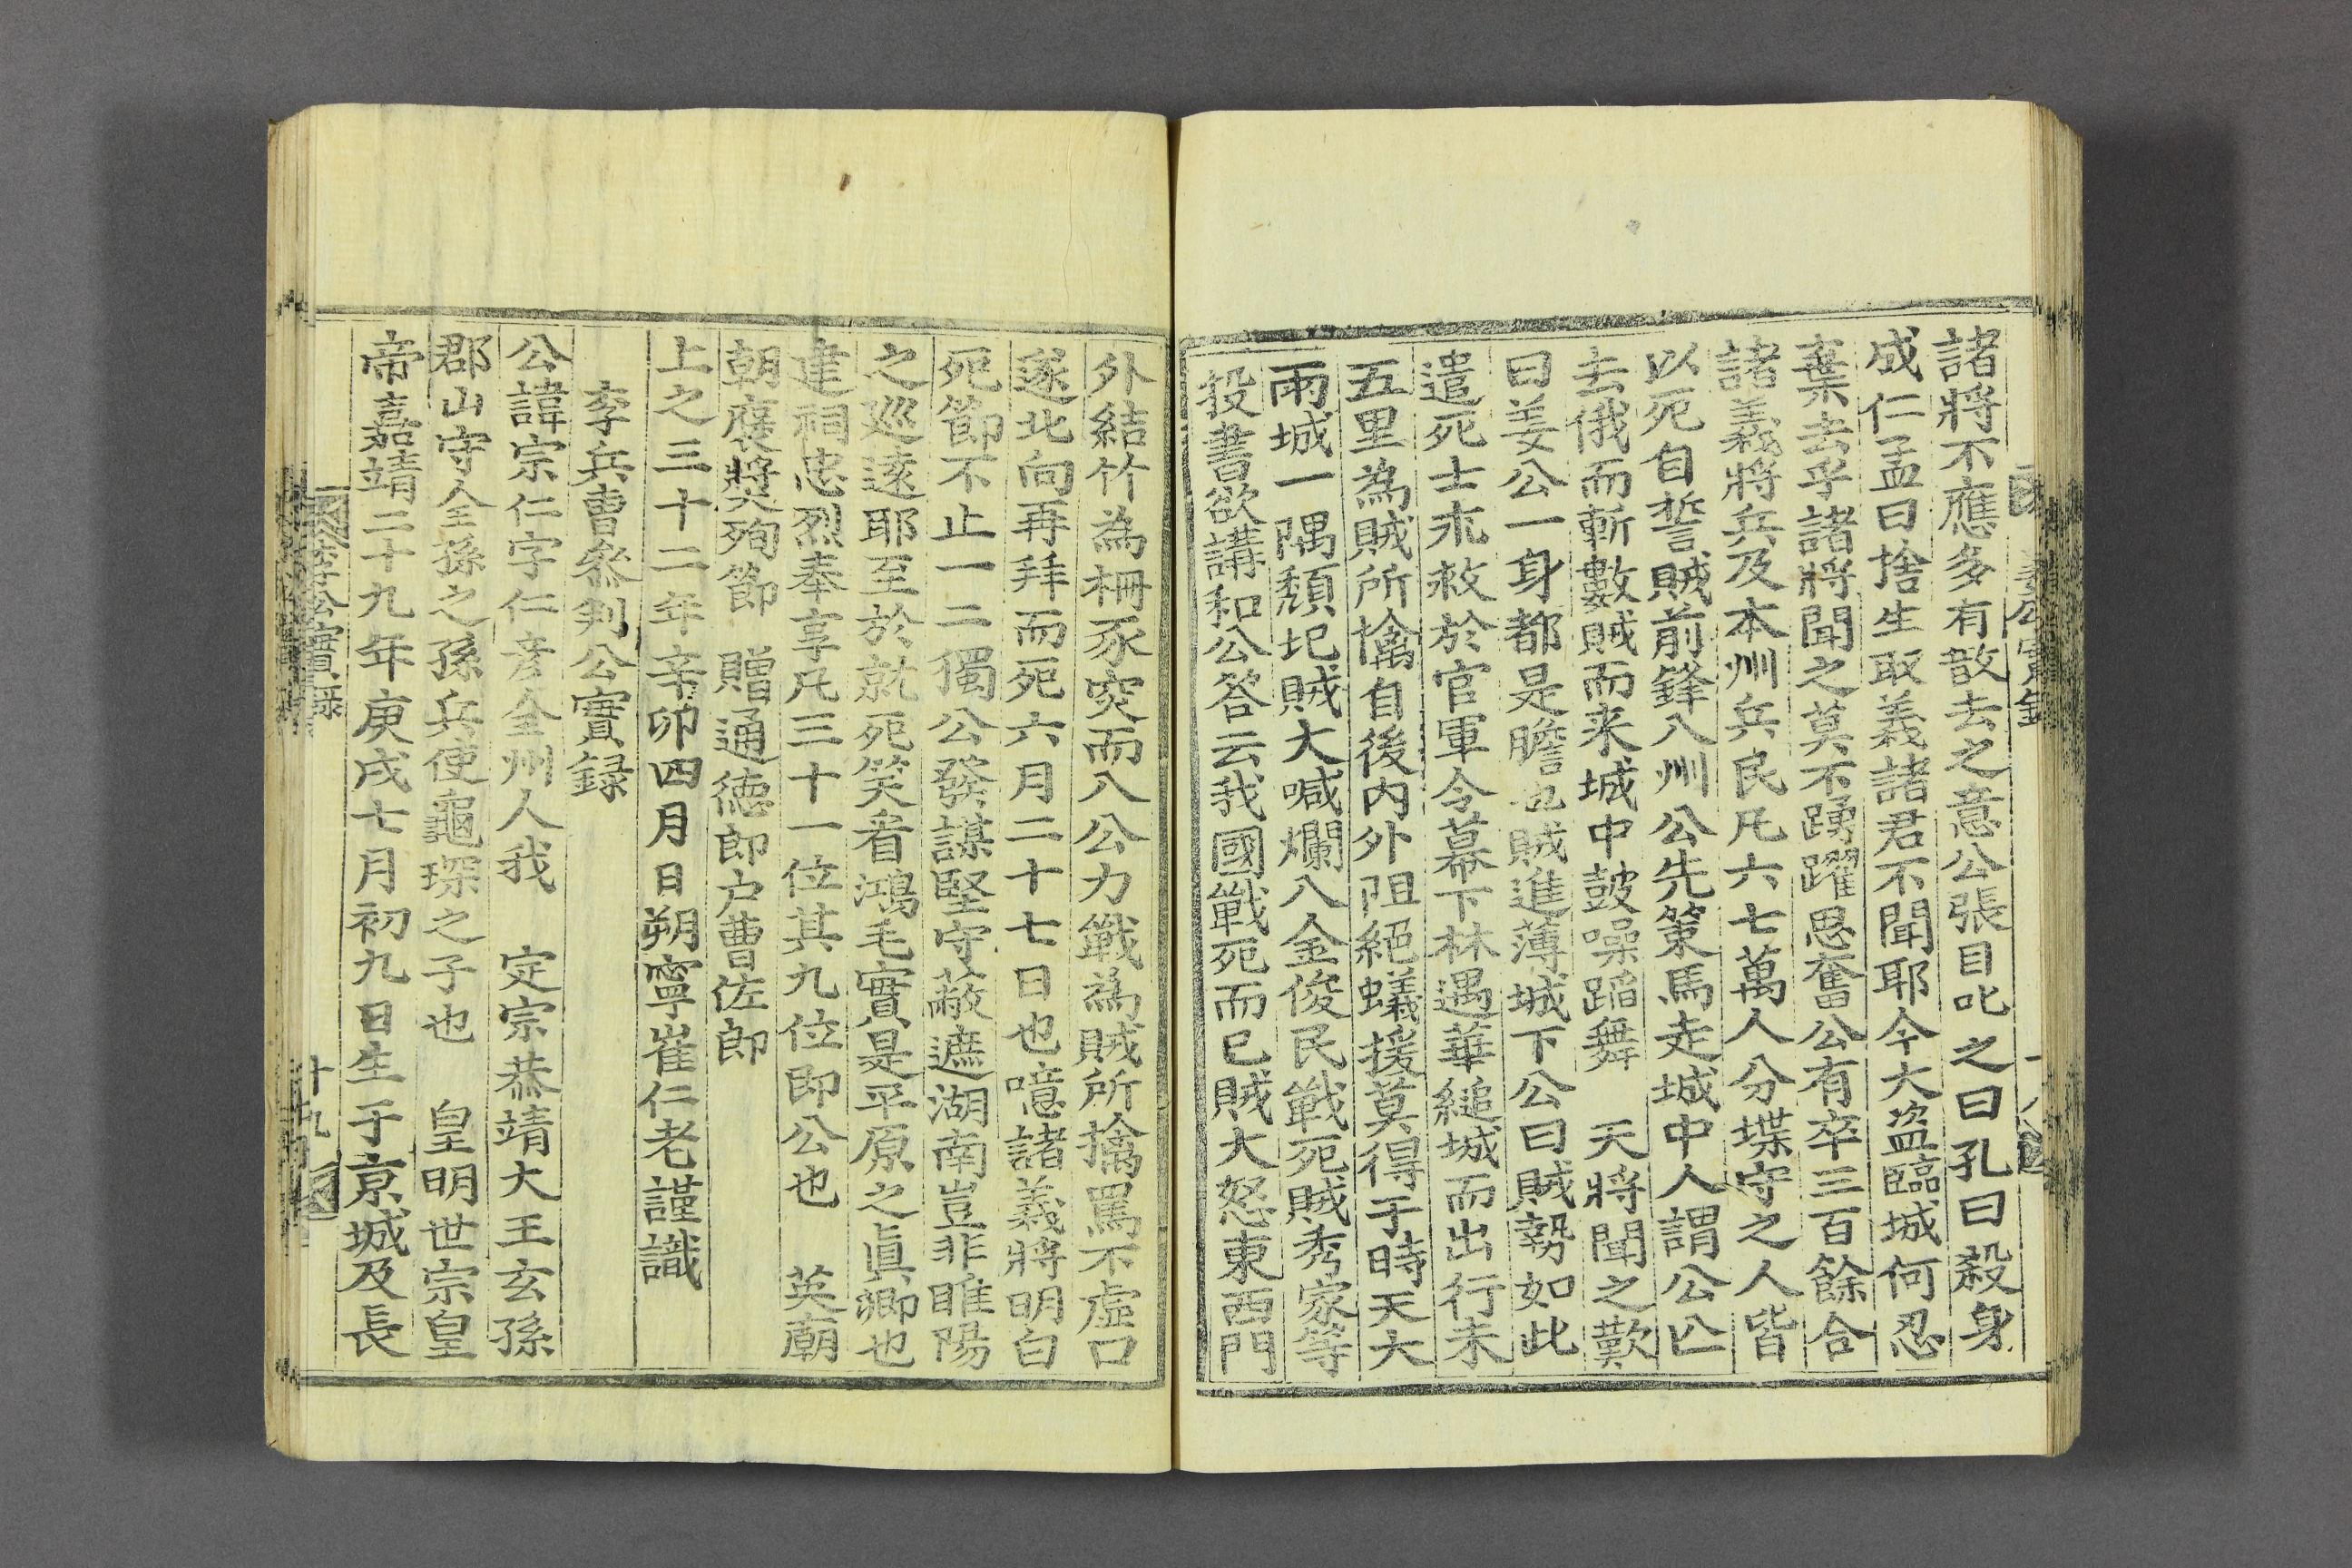 諸將不應多有散去之意公張目叱之曰孔曰殺身
成仁孟曰捨生取義諸君不聞耶今大盜臨城何忍
棄去乎諸將聞之莫不踴躍思奮公有卒三百餘合
諸義將兵及本州兵民凡六七萬人分堞守之人皆
以死自誓賊前鋒入州公先策馬走城中人謂公亡
去俄而斬數賊而来城中鼓噪蹈舞 天將聞之歎
曰姜公一身都是膽也賊進薄城下公曰賊勢如此
遣死士求救於官軍令幕下林遇華縋城而出行未
五里為賊所擒自後內外阻絕蟻援莫得于時天大
雨城一隅頹圮賊大喊攔入金俊民戰死賊秀家等
投書欲講和公答云我國戰死而已賊大怒東西門
外結竹為柵豕突而入公力戰為賊所擒罵不虛口
遂北向再拜而死六月二十七日也噫諸義將明白
死節不止一二獨公發謀堅守蔽遮湖南豈非睢陽
之巡遠耶至於就死笑看鴻毛實是平原之眞卿也
建祠忠烈奉享凡三十一位其九位即公也 英廟
朝褒獎殉節 贈通德郎户曹佐郎
上之三十二年辛卯四月日朔寧崔仁老謹識
李兵曹叅判公實録
公諱宗仁字仁彦全州人我 定宗恭靖大王玄孫
郡山守全孫之孫兵使龜琛之子也 皇明世宗皇
帝嘉靖二十九年庚戌七月初九日生于京城及長
李公實録
十九